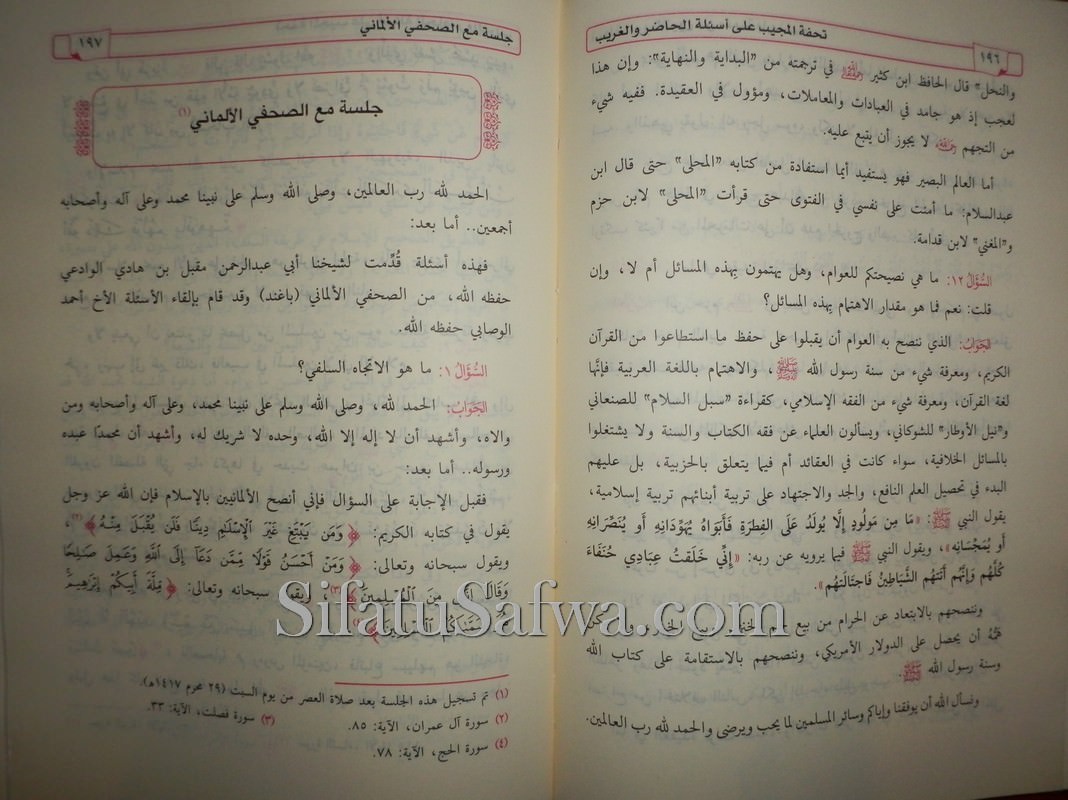 تحفة المجيب على أسئلة الحاضر والغريب
١٩٦
والنحل" قال الحافظ ابن كثير رحمه الله في ترجمته من "البداية والنهاية": وإن هذا
لعجب إذ هو جامد في العبادات والمعاملات، ومؤول في العقيدة. ففيه شيء
من التجهم رحمه الله، لا يجوز أن يتبع عليه.
أما العالم البصير فهو يستفيد أيما استفادة من كتابه "المحلى" حتى قال ابن
عبدالسلام: ما أمنت على نفسي في الفتوى حتى قرأت "المحلى" لابن حزم
و"المغني" لابن قدامة.
السُّؤَالُ ١٢: ما هي نصيحتكم للعوام، وهل يهتمون بِهذه المسائل أم لا، وإن
قلت: نعم فما هو مقدار الاهتمام بِهذه المسائل؟
الجَوَابُ: الذي ننصح به العوام أن يقبلوا على حفظ ما استطاعوا من القرآن
الكريم، ومعرفة شيء من سنة رسول الله ﷺ، والاهتمام باللغة العربية فإنَّها
لغة القرآن، ومعرفة شيء من الفقه الإسلامي، كقراءة "سبل السلام" للصنعاني
و"نيل الأوطار" للشوكاني، ويسألون العلماء عن فقه الكتاب والسنة ولا يشتغلوا
بالمسائل الخلافية، سواء كانت في العقائد أم فيما يتعلق بالحزبية، بل عليهم
البدء في تحصيل العلم النافع، والجد والاجتهاد على تربية أبنائهم تربية إسلامية،
يقول النبي ﷺ: «مَا مِن مَولُودٍ إِلَّا يُولَدُ عَلَى الفِطرَةِ فَأَبَوَاهُ يُهَوِّدَانِهِ أَو يُنَصِّرَانِهِ
أَو يُمَجِّسَانِهِ»، ويقول النبي ﷺ فيما يرويه عن ربه: «إِنِّي خَلَقتُ عِبَادِي حُنَفَاءَ
كُلَّهُم وَإِنَّهُم أَتَتهُم الشَّيَاطِينُ فَاجتَالَتهُم».
وننصحهم بالابتعاد عن الحرام من بيع لحم الخنزير وبيع الخمر، ولا يكن
هَمُّهُ أن يحصل على الدولار الأمريكي، وننصحهم بالاستقامة على كتاب الله
وسنة رسول الله ﷺ.
ونسأل الله أن يوفقنا وإياكم وسائر المسلمين لما يحب ويرضى والحمد لله رب العالمين.
جلسة مع الصحفي الألماني
١٩٧
جلسة مع الصحفي الألماني(١)
الحمد لله رب العالمين، وصلى الله وسلم على نبينا محمد وعلى آله وأصحابه
أجمعين.. أما بعد:
فهذه أسئلة قُدِّمت لشيخنا أبي عبدالرحمن مقبل بن هادي الوادعي
حفظه الله، من الصحفي الألماني (باغند) وقد قام بإلقاء الأسئلة الأخ أحمد
الوصابي حفظه الله.
السُّؤَالُ ١: ما هو الاتجاه السلفي؟
الجَوَابُ: الحمد لله، وصلى الله وسلم على نبينا محمد، وعلى آله وأصحابه ومن
والاه، وأشهد أن لا إله إلا الله، وحده لا شريك له، وأشهد أن محمدًا عبده
ورسوله.. أما بعد:
فقبل الإجابة على السؤال فإني أنصح الألمانيين بالإسلام فإن الله عز وجل
يقول في كتابه الكريم: ﴿وَمَن يَبْتَغِ غَيْرَ الْإِسْلَٰمِ دِينًا فَلَن يُقْبَلَ مِنْهُ﴾(٢)،
ويقول سبحانه وتعالى: ﴿وَمَنْ أَحْسَنُ قَوْلًا مِّمَّن دَعَآ إِلَى اللَّهِ وَعَمِلَ صَٰلِحًا
وَقَالَ إِنَّنِي مِنَ الْمُسْلِمِينَ﴾(٣)، ويقول سبحانه وتعالى: ﴿مِّلَّةَ أَبِيكُمْ إِبْرَٰهِيمَ
هُوَ سَمَّىٰكُمُ الْمُسْلِمِينَ﴾(٤)
SifatuSafwa.com
(١) تم تسجيل هذه الجلسة بعد صلاة العصر من يوم السبت (٢٩ محرم ١٤١٧هـ).
(٢) سورة آل عمران، الآية: ٨٥.
(٣) سورة فصلت، الآية: ٣٣.
(٤) سورة الحج، الآية: ٧٨.